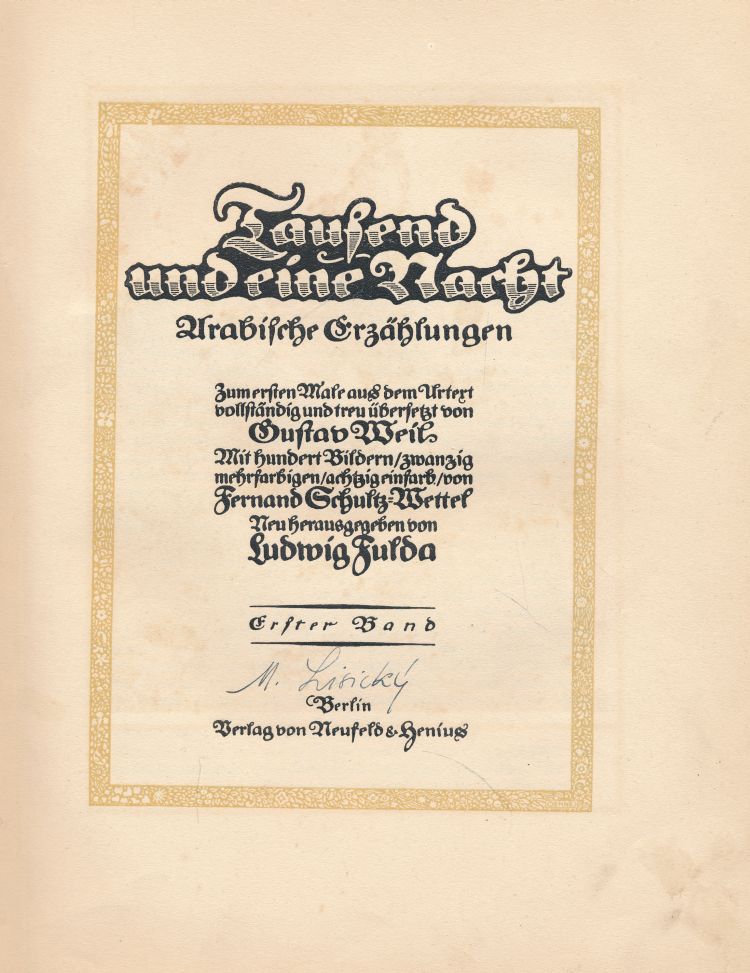 Tausend
und eine Nacht
Arabische Erzählungen
Zum ersten Male aus dem Urtext
vollständig und treu übersetzt von
Gustav Weil
Mit hundert Bildern/zwanzig
mehrfarbigen/achtzig einfarb/von
Fernand Schultz=Wettel
Neu herausgegeben von
Ludwig Fulda
Erster Band
M. Lisický
Berlin
Verlag von Neufeld & Henius